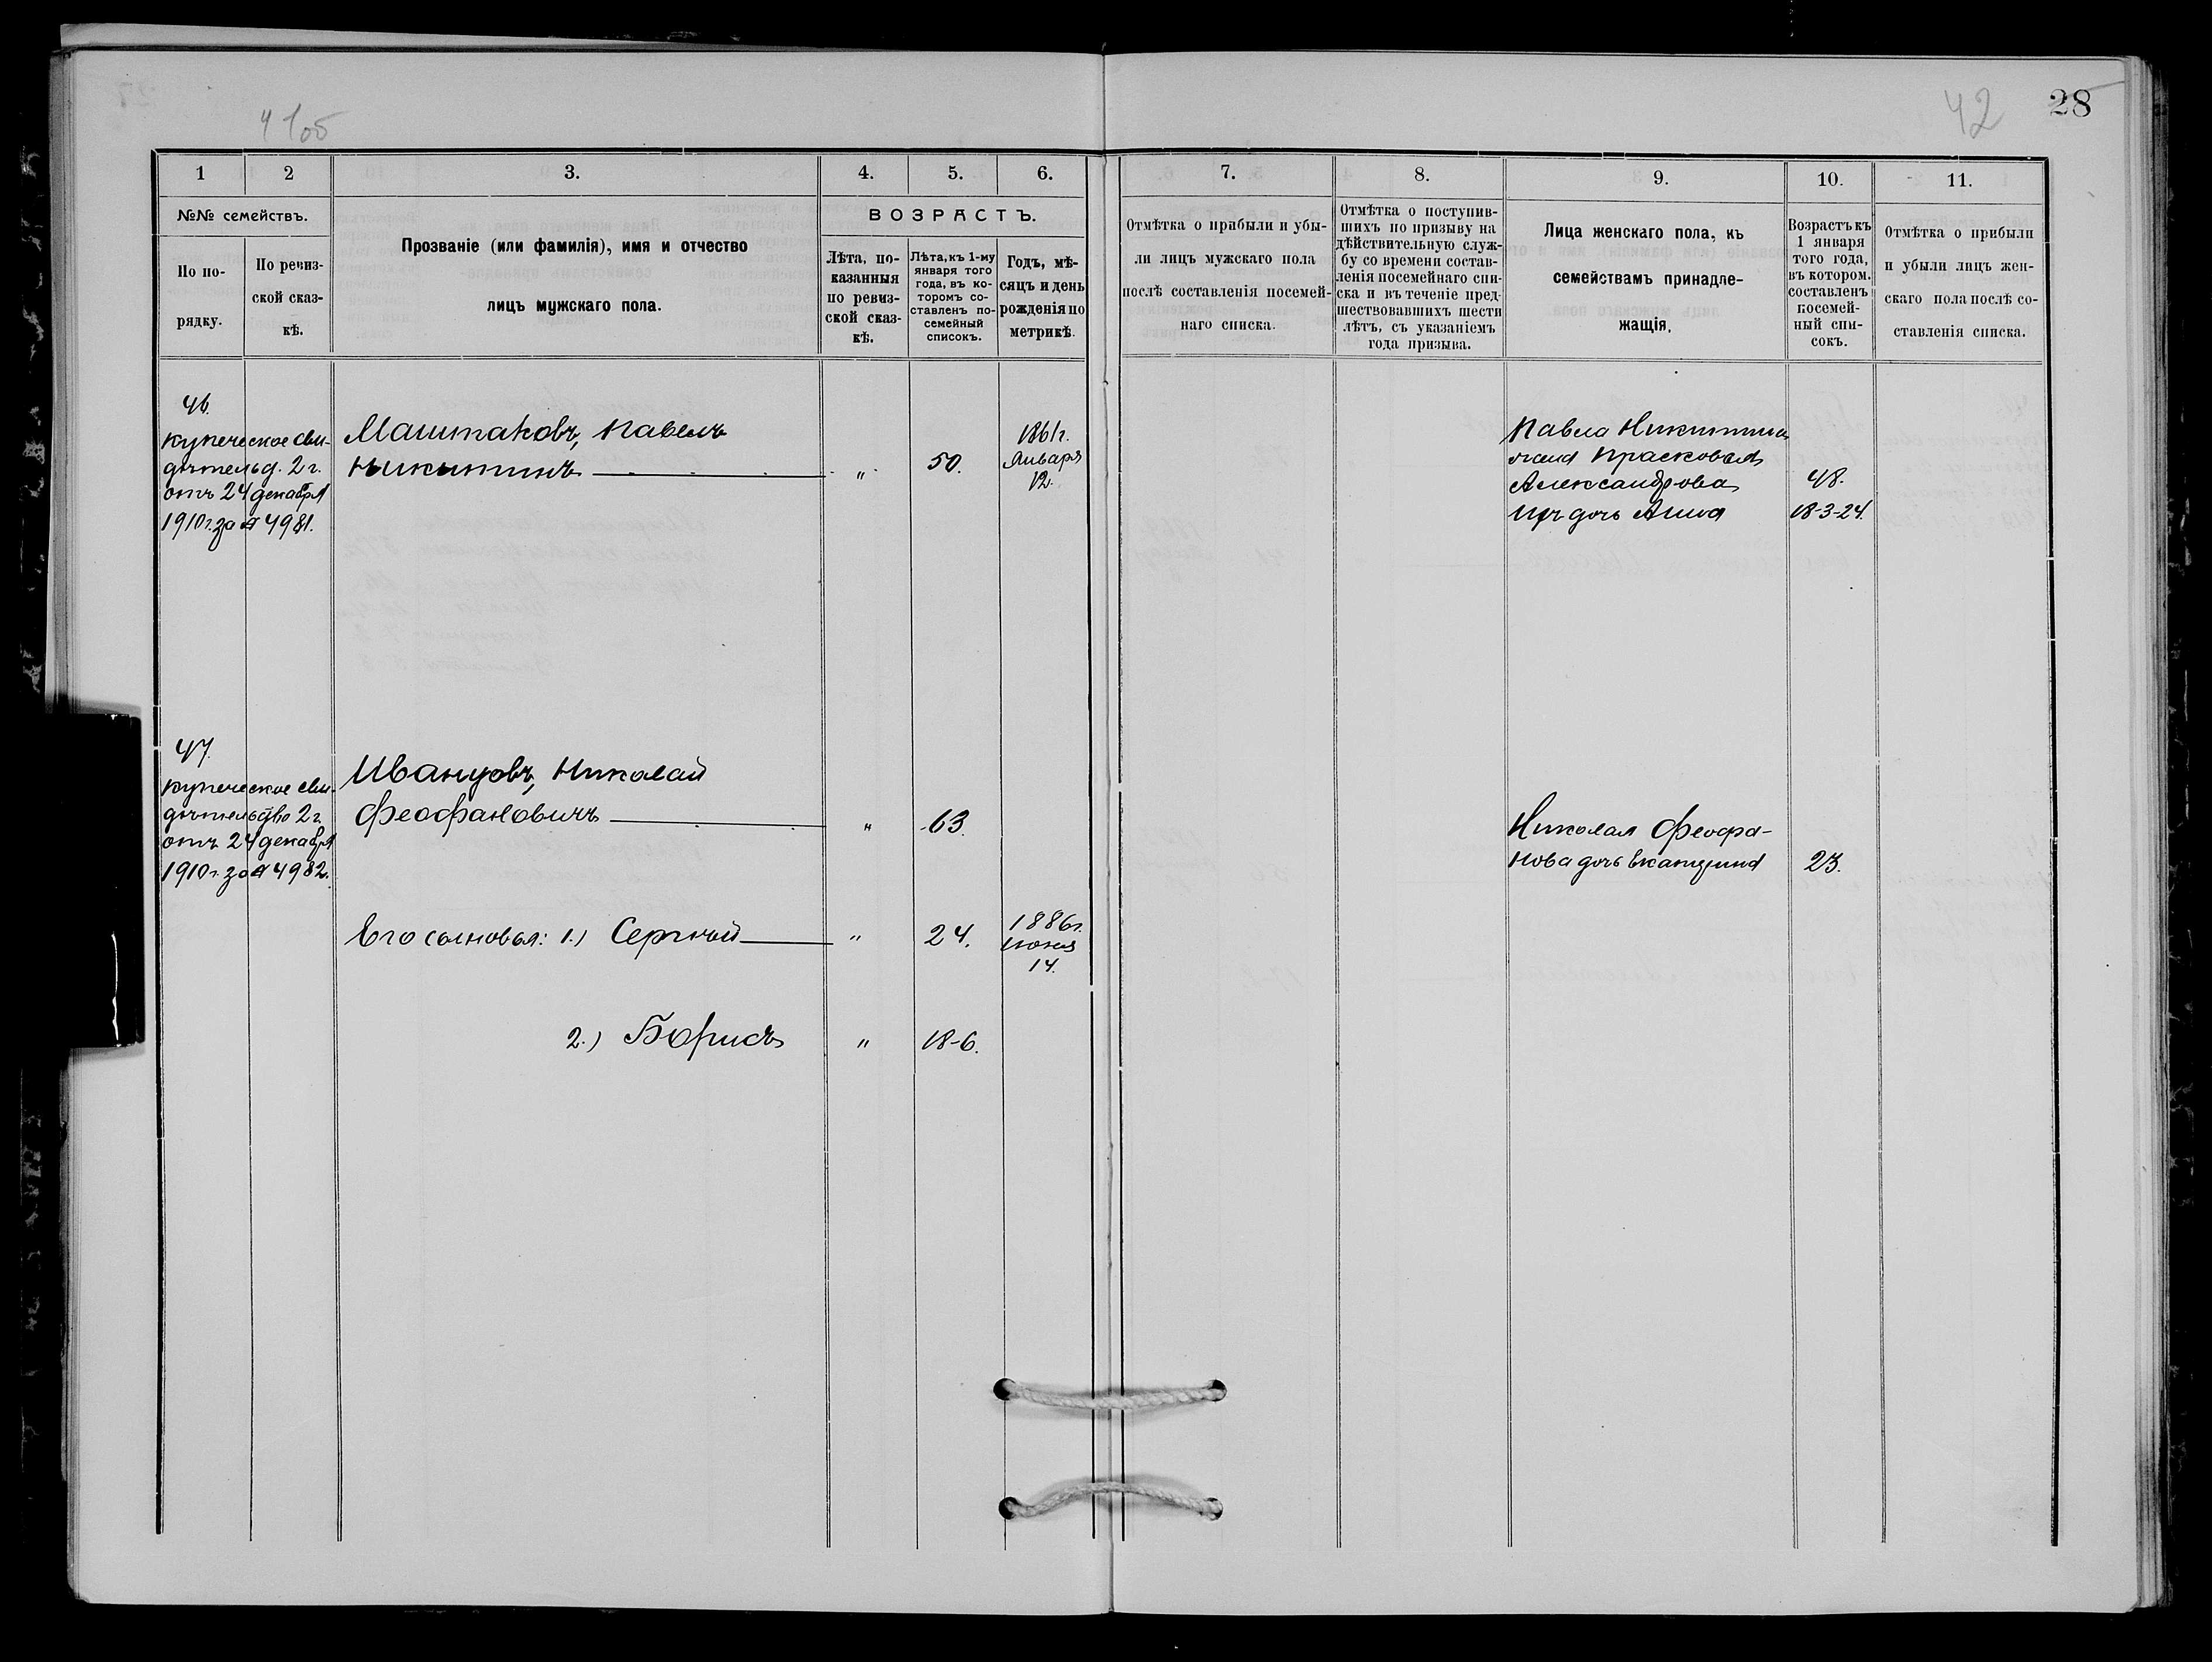 4 105
42 28
1 2 3. 4. 5. 6. 7. 8. 9. 10. 11.
№№ семействъ.
По по-
рядку.
По ревиз-
ской сказ-
кѣ.
Прозваніе (или фамилія), имя и отчество
лицъ мужскаго пола.
ВОЗРАСТЪ.
Лѣта, по-
казанныя
по ревиз-
ской сказ-
кѣ.
Лѣта, къ 1-му
января того
года, въ ко-
торомъ со-
ставленъ по-
семейный
списокъ.
Годъ, мѣ-
сяцъ и день
рожденія по
метрикѣ.
Отмѣтка о прибыли и убы-
ли лицъ мужскаго пола
послѣ составленія посемей-
наго списка.
Отмѣтка о поступив-
шихъ по призыву на
дѣйствительную служ-
бу со времени состав-
ленія посемейнаго спи-
ска и въ теченіе пред-
шествовавшихъ шести
лѣтъ, съ указаніемъ
года призыва.
Лица женскаго пола, къ
семействамъ принадле-
жащія.
Возрастъ къ
1 января
того года,
въ котором.
составленъ
посемей-
ный спи-
сокъ.
Отмѣтка о прибыли
и убыли лицъ жен-
скаго пола послѣ со-
ставленія списка.
46.
купеческое сви-
дѣтельд. 2 г.
отъ 24 декабря
1910 г. за № 4981.
Маштаковъ, Павелъ
Никитинъ
„
50.
1861 г.
Января
12.
Павла Никитина
жена Прасковья
Александрова 48.
Ихъ дочь Анна 18-3-24.
47.
купеческое сви-
дѣтельство 2 г.
отъ 24 декабря
1910 г. за № 4982.
Иванцовъ, Николай
Феофановичъ „ 63.
Николая Феофа-
нова дочь Екатерина 23.
Его сыновья: 1.) Сергѣй „ 24.
1886 г.
июня
14.
2.) Борисъ „ 18-6.